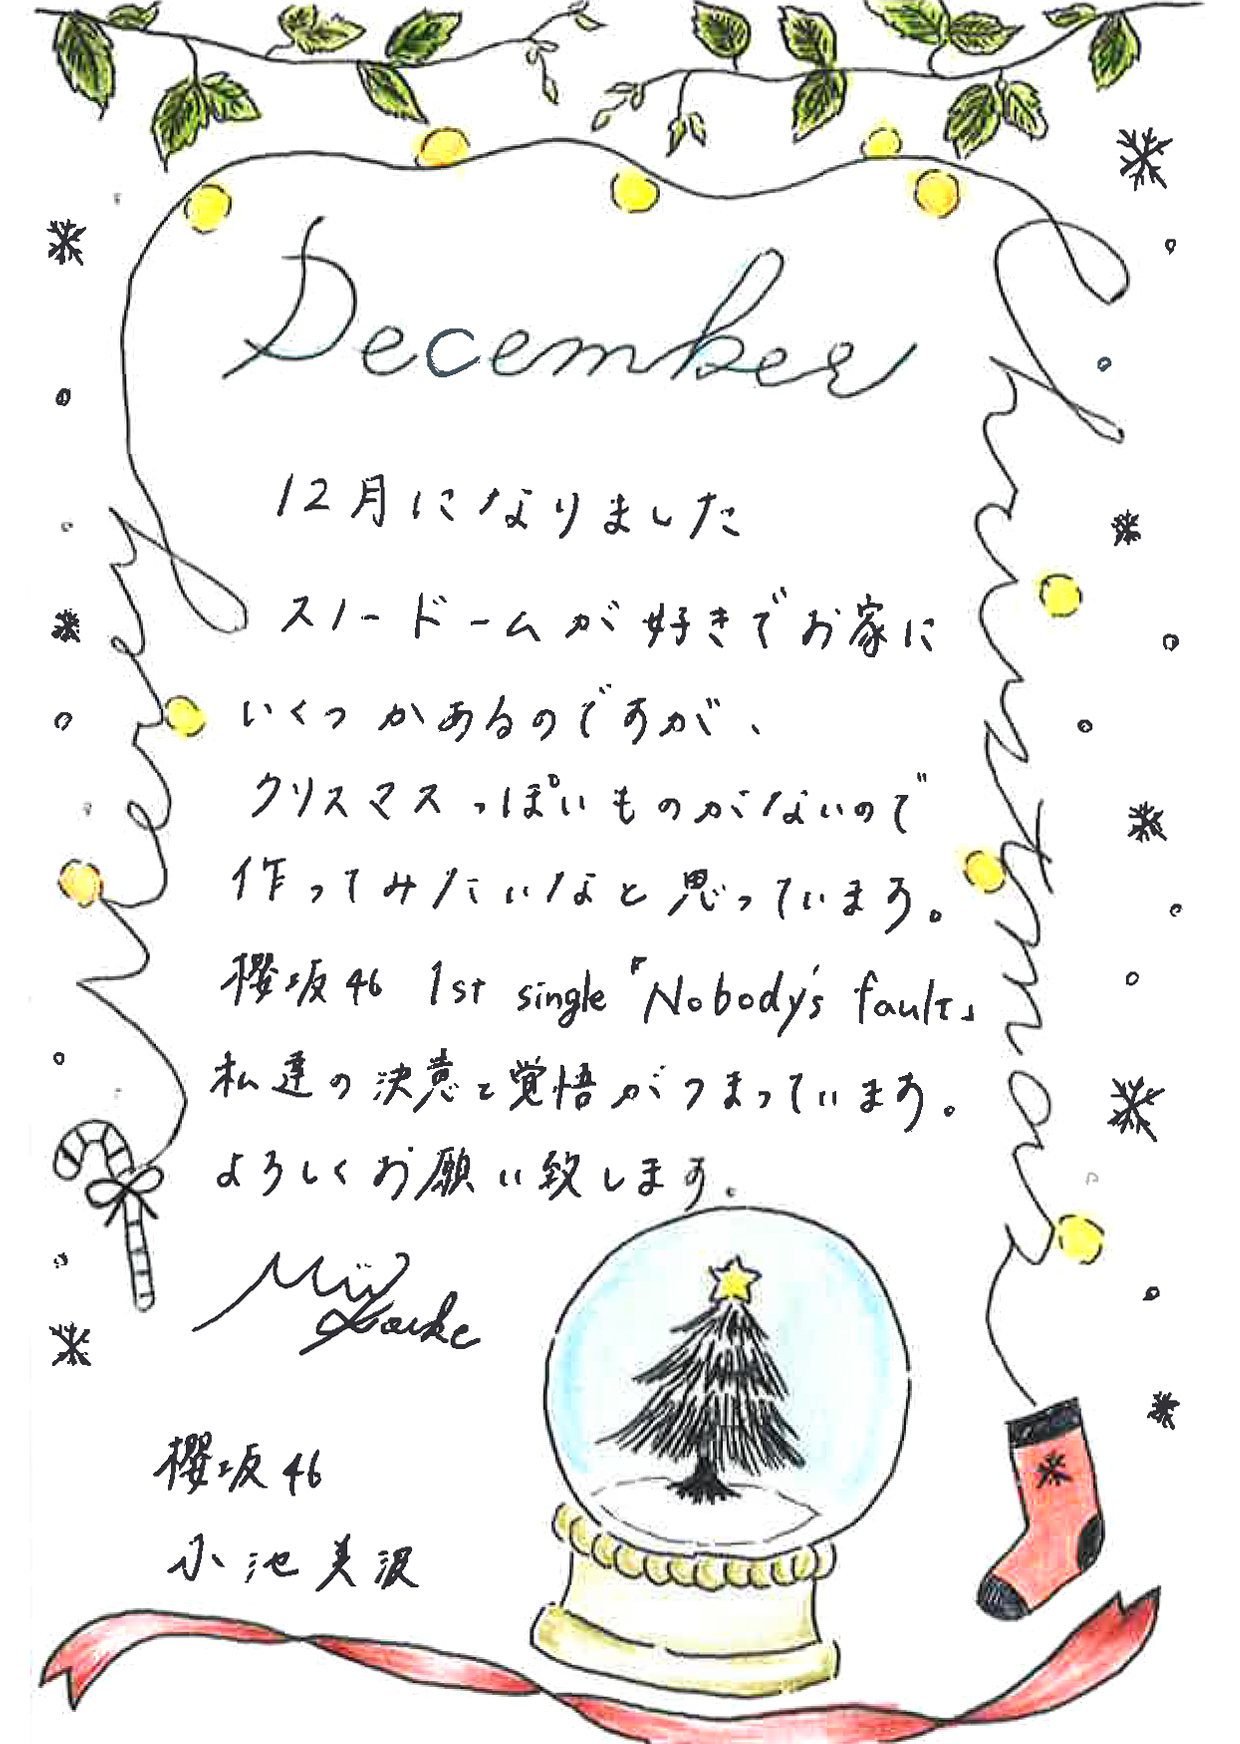 December
12月になりました
スノードームが好きでお家に
いくつかあるのですが、
クリスマスっぽいものがないので
作ってみたいなと思っています。
櫻坂46 1st single『Nobody's fault』
私達の決意と覚悟がつまっています。
よろしくお願い致します。
櫻坂46
小池美波